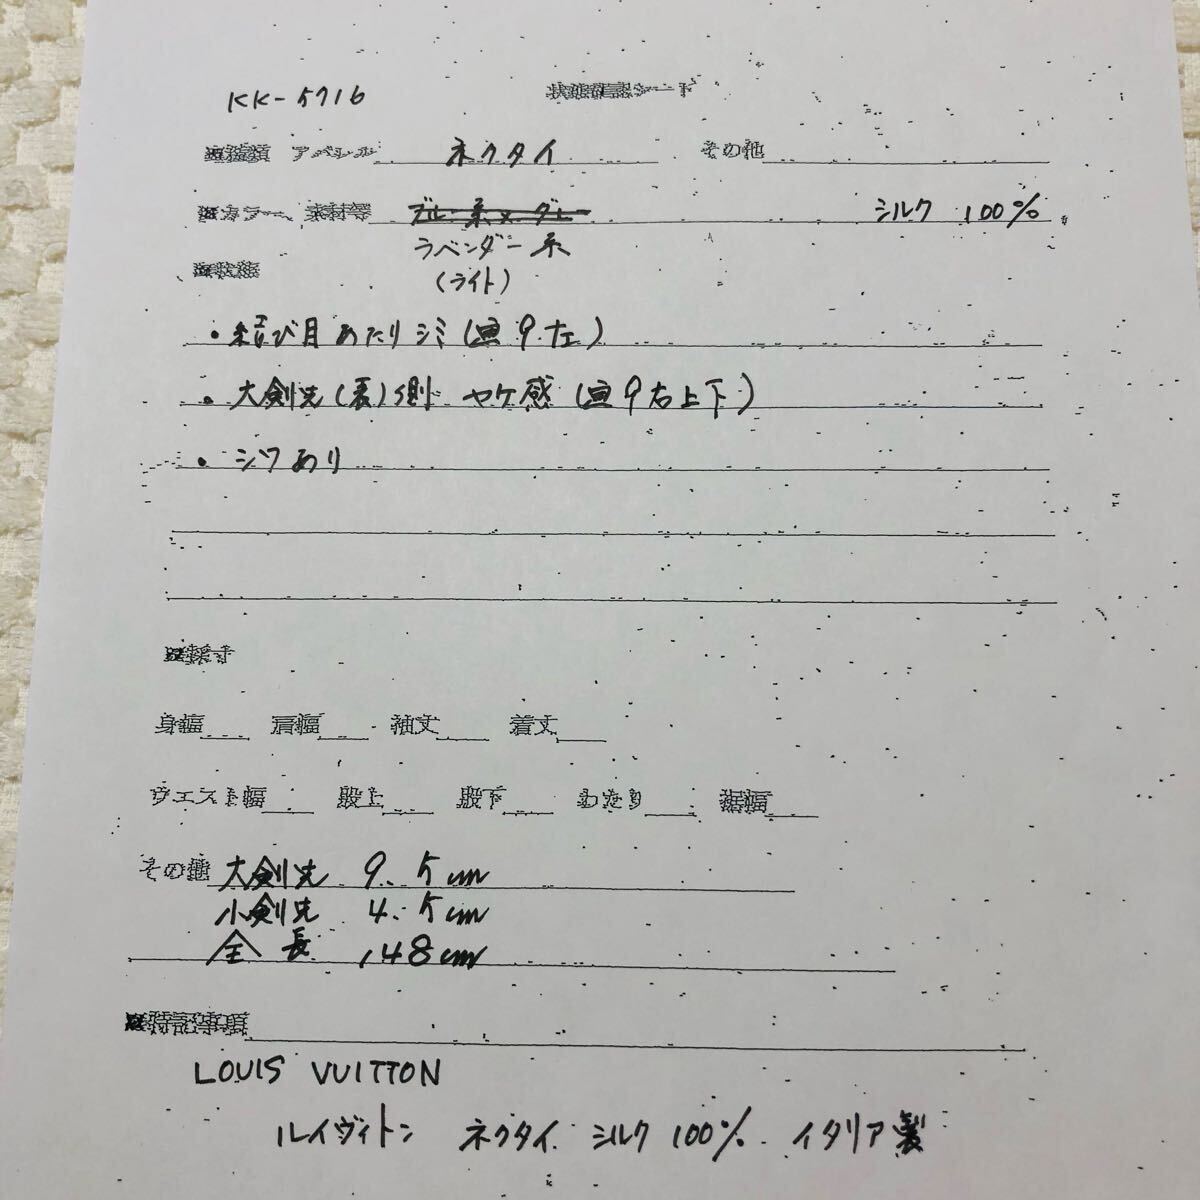 KK-5716 状態確認シート
■種類 アパレル ネクタイ その他
■カラー、素材等 シルク 100%
ラベンダー系
■状態 (ライト)
・結び目あたりシミ(画9左)
・大剣先(裏)側 ヤケ感(画9右上下)
・シワあり
■採寸
身幅 肩幅 袖丈 着丈
ウエスト幅 股上 股下 わたり 裾幅
その他 大剣先 9.5cm
小剣先 4.5cm
全長 148cm
■特記事項
LOUIS VUITTON
ルイヴィトン ネクタイ シルク 100% イタリア製